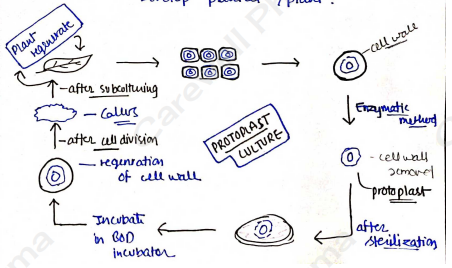 Develop /plant.
Plant
regenerate
after subculturing
Callus
after cell division
regenration
of cell wall
Incubate
in BOD
incubator
PROTOPLAST
CULTURE
cell wall
Enzymatic
method
cell wall
removed
protoplast
after
sterilization